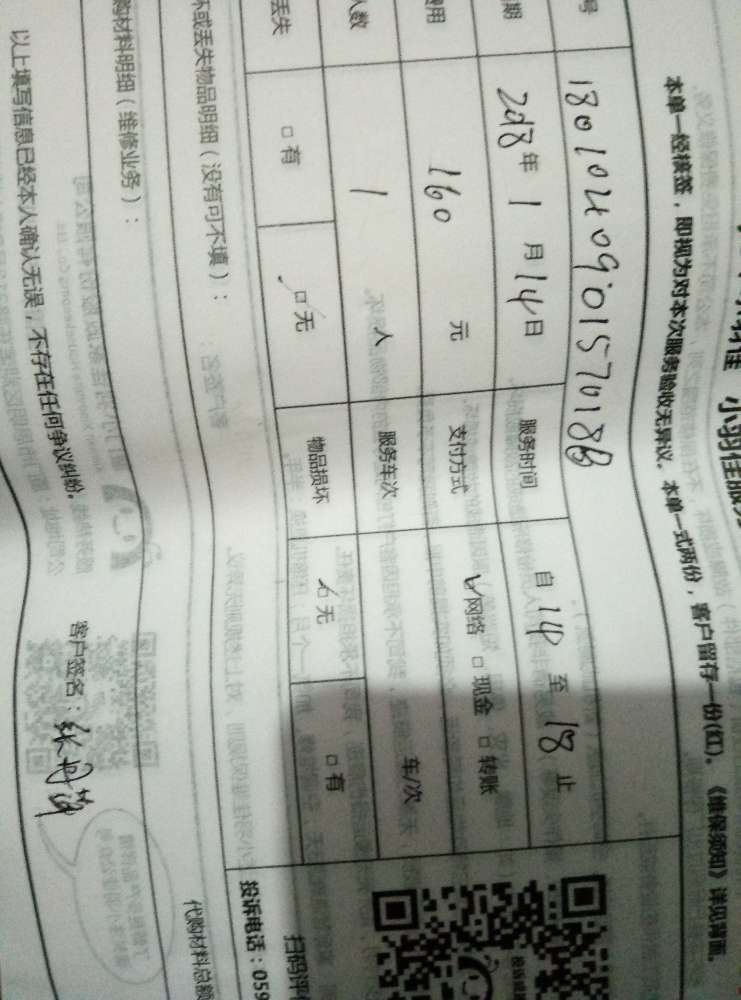 小羽佳服
本单一经核签，即视为对本次服务验收无异议。本单一式两份，客户留存一份(红)。《维保须知》详见背面。
号 180104090157018B
期 2018年1月14日 服务时间 自14至18止
费用 160元 支付方式 ☑网络 □现金 □转账
人数 1人 服务车次 车/次
丢失 □有 ☑无 物品损坏 ☑无 □有
坏或丢失物品明细（没有可不填）：
购材料明细（维修业务）：
代购材料总额
以上填写信息已经本人确认无误，不存在任何争议纠纷。
客户签名：
扫码评
投诉电话：059